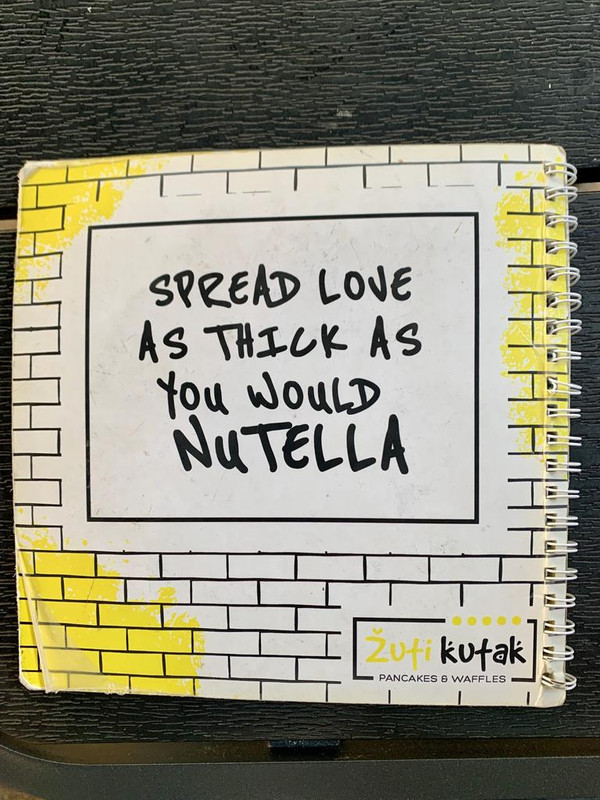 SPREAD LOVE
AS THICK AS
YOU WOULD
NUTELLA
Žuti kutak
PANCAKES & WAFFLES